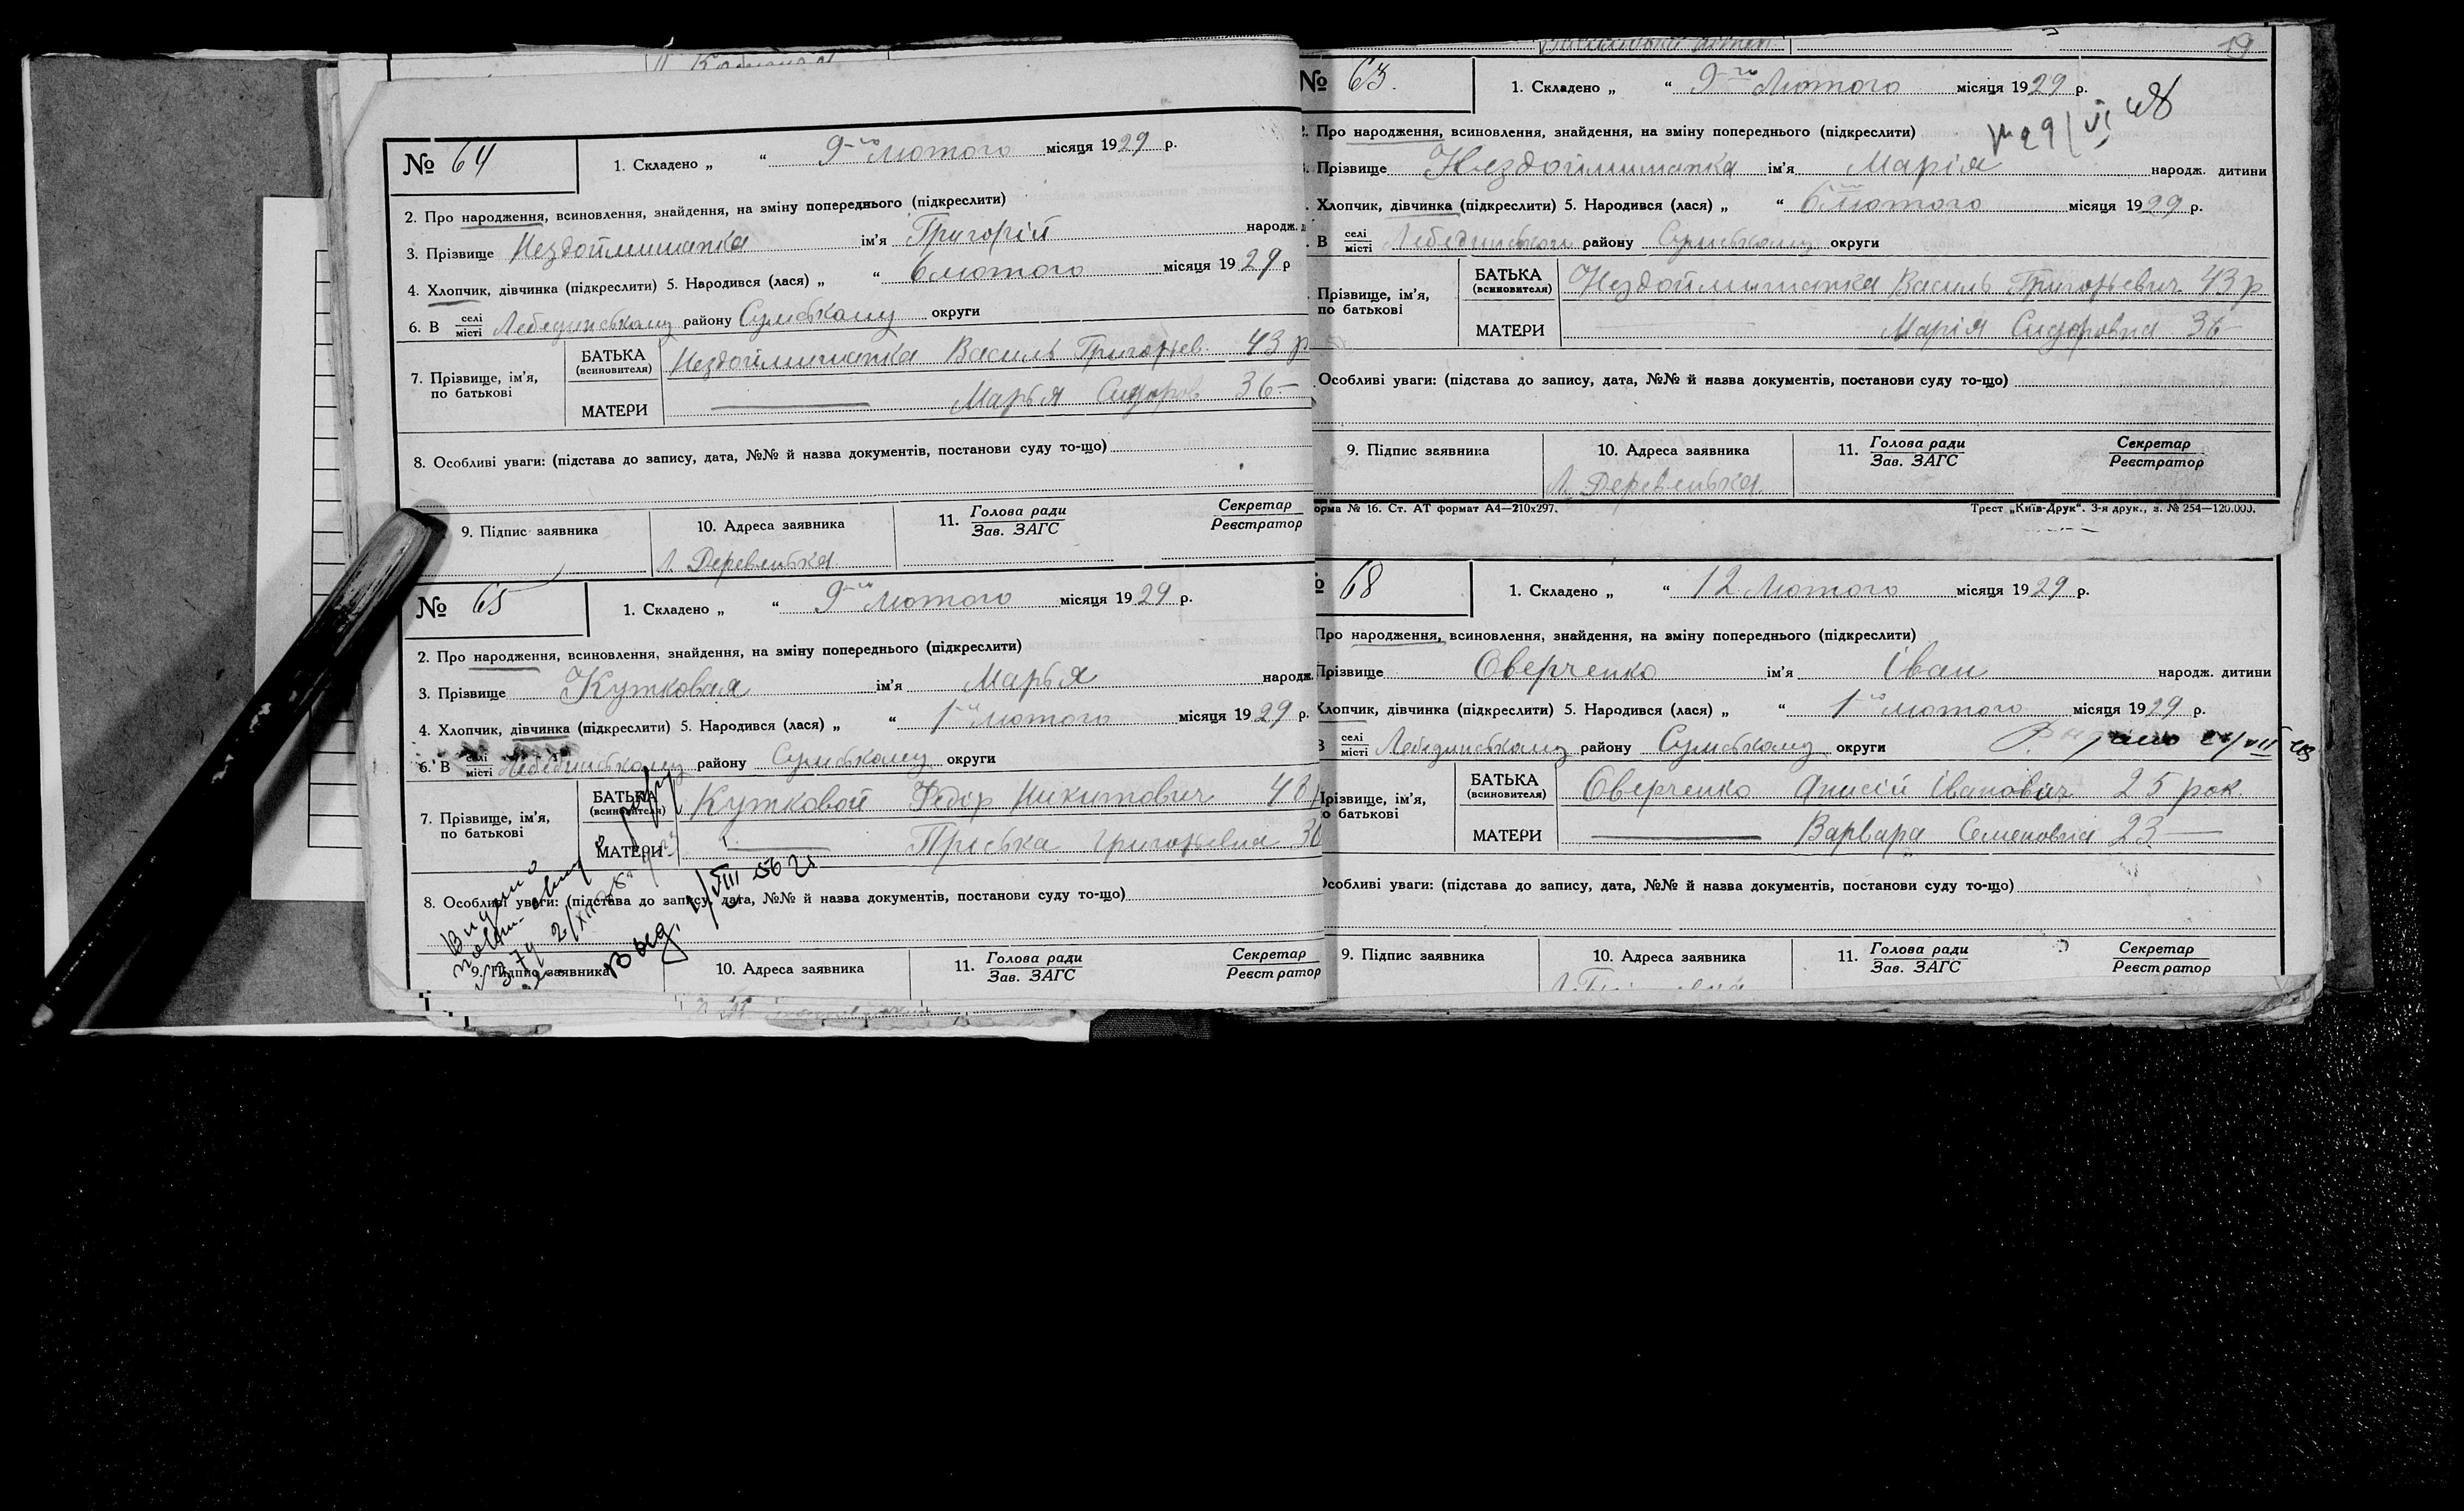 № 64
1. Складено „ “ 9-го Лютого місяця 1929 р.
2. Про народження, всиновлення, знайдення, на зміну попереднього (підкреслити)
3. Прізвище Нездоймишапка ім'я Григорій народж.
4. Хлопчик, дівчинка (підкреслити) 5. Народився (лася) „ “ 6 лютого місяця 1929 р
6. В селі місті Лебединському району Сумському округи
7. Прізвище, ім'я, по батькові
БАТЬКА (всиновителя) Нездоймишапка Василь Григорьев. 43 р
МАТЕРИ — Марья Сидоров 36 —
8. Особливі уваги: (підстава до запису, дата, №№ й назва документів, постанови суду то-що)
9. Підпис заявника
10. Адреса заявника
Л. Деревенька
11. Голова ради Зав. ЗАГС
Секретар Реєстратор
№ 65
1. Складено „ “ 9-го Лютого місяця 1929 р.
2. Про народження, всиновлення, знайдення, на зміну попереднього (підкреслити)
3. Прізвище Кутковая ім'я Марья народж.
4. Хлопчик, дівчинка (підкреслити) 5. Народився (лася) „ “ 1-го лютого місяця 1929 р.
6. В селі місті Лебединському району Сумському округи
7. Прізвище, ім'я, по батькові
БАТЬКА (всиновителя) Кутковой Федір Никитович
МАТЕРИ — Пріська Григорьевна
8. Особливі уваги: (підстава до запису, дата, №№ й назва документів, постанови суду то-що)
Выд. VIII 56 г
9. Підпис заявника
10. Адреса заявника
11. Голова ради Зав. ЗАГС
Секретар Реєстратор
19
№ 63.
1. Складено „ “ 9-го Лютого місяця 1929 р.
29/VI 48
2. Про народження, всиновлення, знайдення, на зміну попереднього (підкреслити)
Прізвище Нездоймишапка ім'я Марія народж. дитини
Хлопчик, дівчинка (підкреслити) 5. Народився (лася) „ “ 6 лютого місяця 1929 р.
В селі місті Лебединськом району Сумському округи
Прізвище, ім'я, по батькові
БАТЬКА (всиновителя) Нездоймишапка Василь Григорьевич 43 р
МАТЕРИ — Марія Сидоровна 36 —
Особливі уваги: (підстава до запису, дата, №№ й назва документів, постанови суду то-що)
9. Підпис заявника
10. Адреса заявника
Л. Деревенька
11. Голова ради Зав. ЗАГС
Секретар Реєстратор
орма № 16. Ст. АТ формат А4—210x297.
Трест „Київ-Друк“. 3-я друк., з. № 254—120.000.
68
1. Складено „ “ 12 Лютого місяця 1929 р.
Про народження, всиновлення, знайдення, на зміну попереднього (підкреслити)
Прізвище Оверченко ім'я Іван народж. дитини
Хлопчик, дівчинка (підкреслити) 5. Народився (лася) „ “ 1-го лютого місяця 1929 р.
В селі місті Лебединському району Сумському округи
Прізвище, ім'я, по батькові
БАТЬКА (всиновителя) Оверченко Анисій Іванович 25 рок.
МАТЕРИ — Варвара Семеновна 23 —
Особливі уваги: (підстава до запису, дата, №№ й назва документів, постанови суду то-що)
9. Підпис заявника
10. Адреса заявника
11. Голова ради Зав. ЗАГС
Секретар Реєстратор